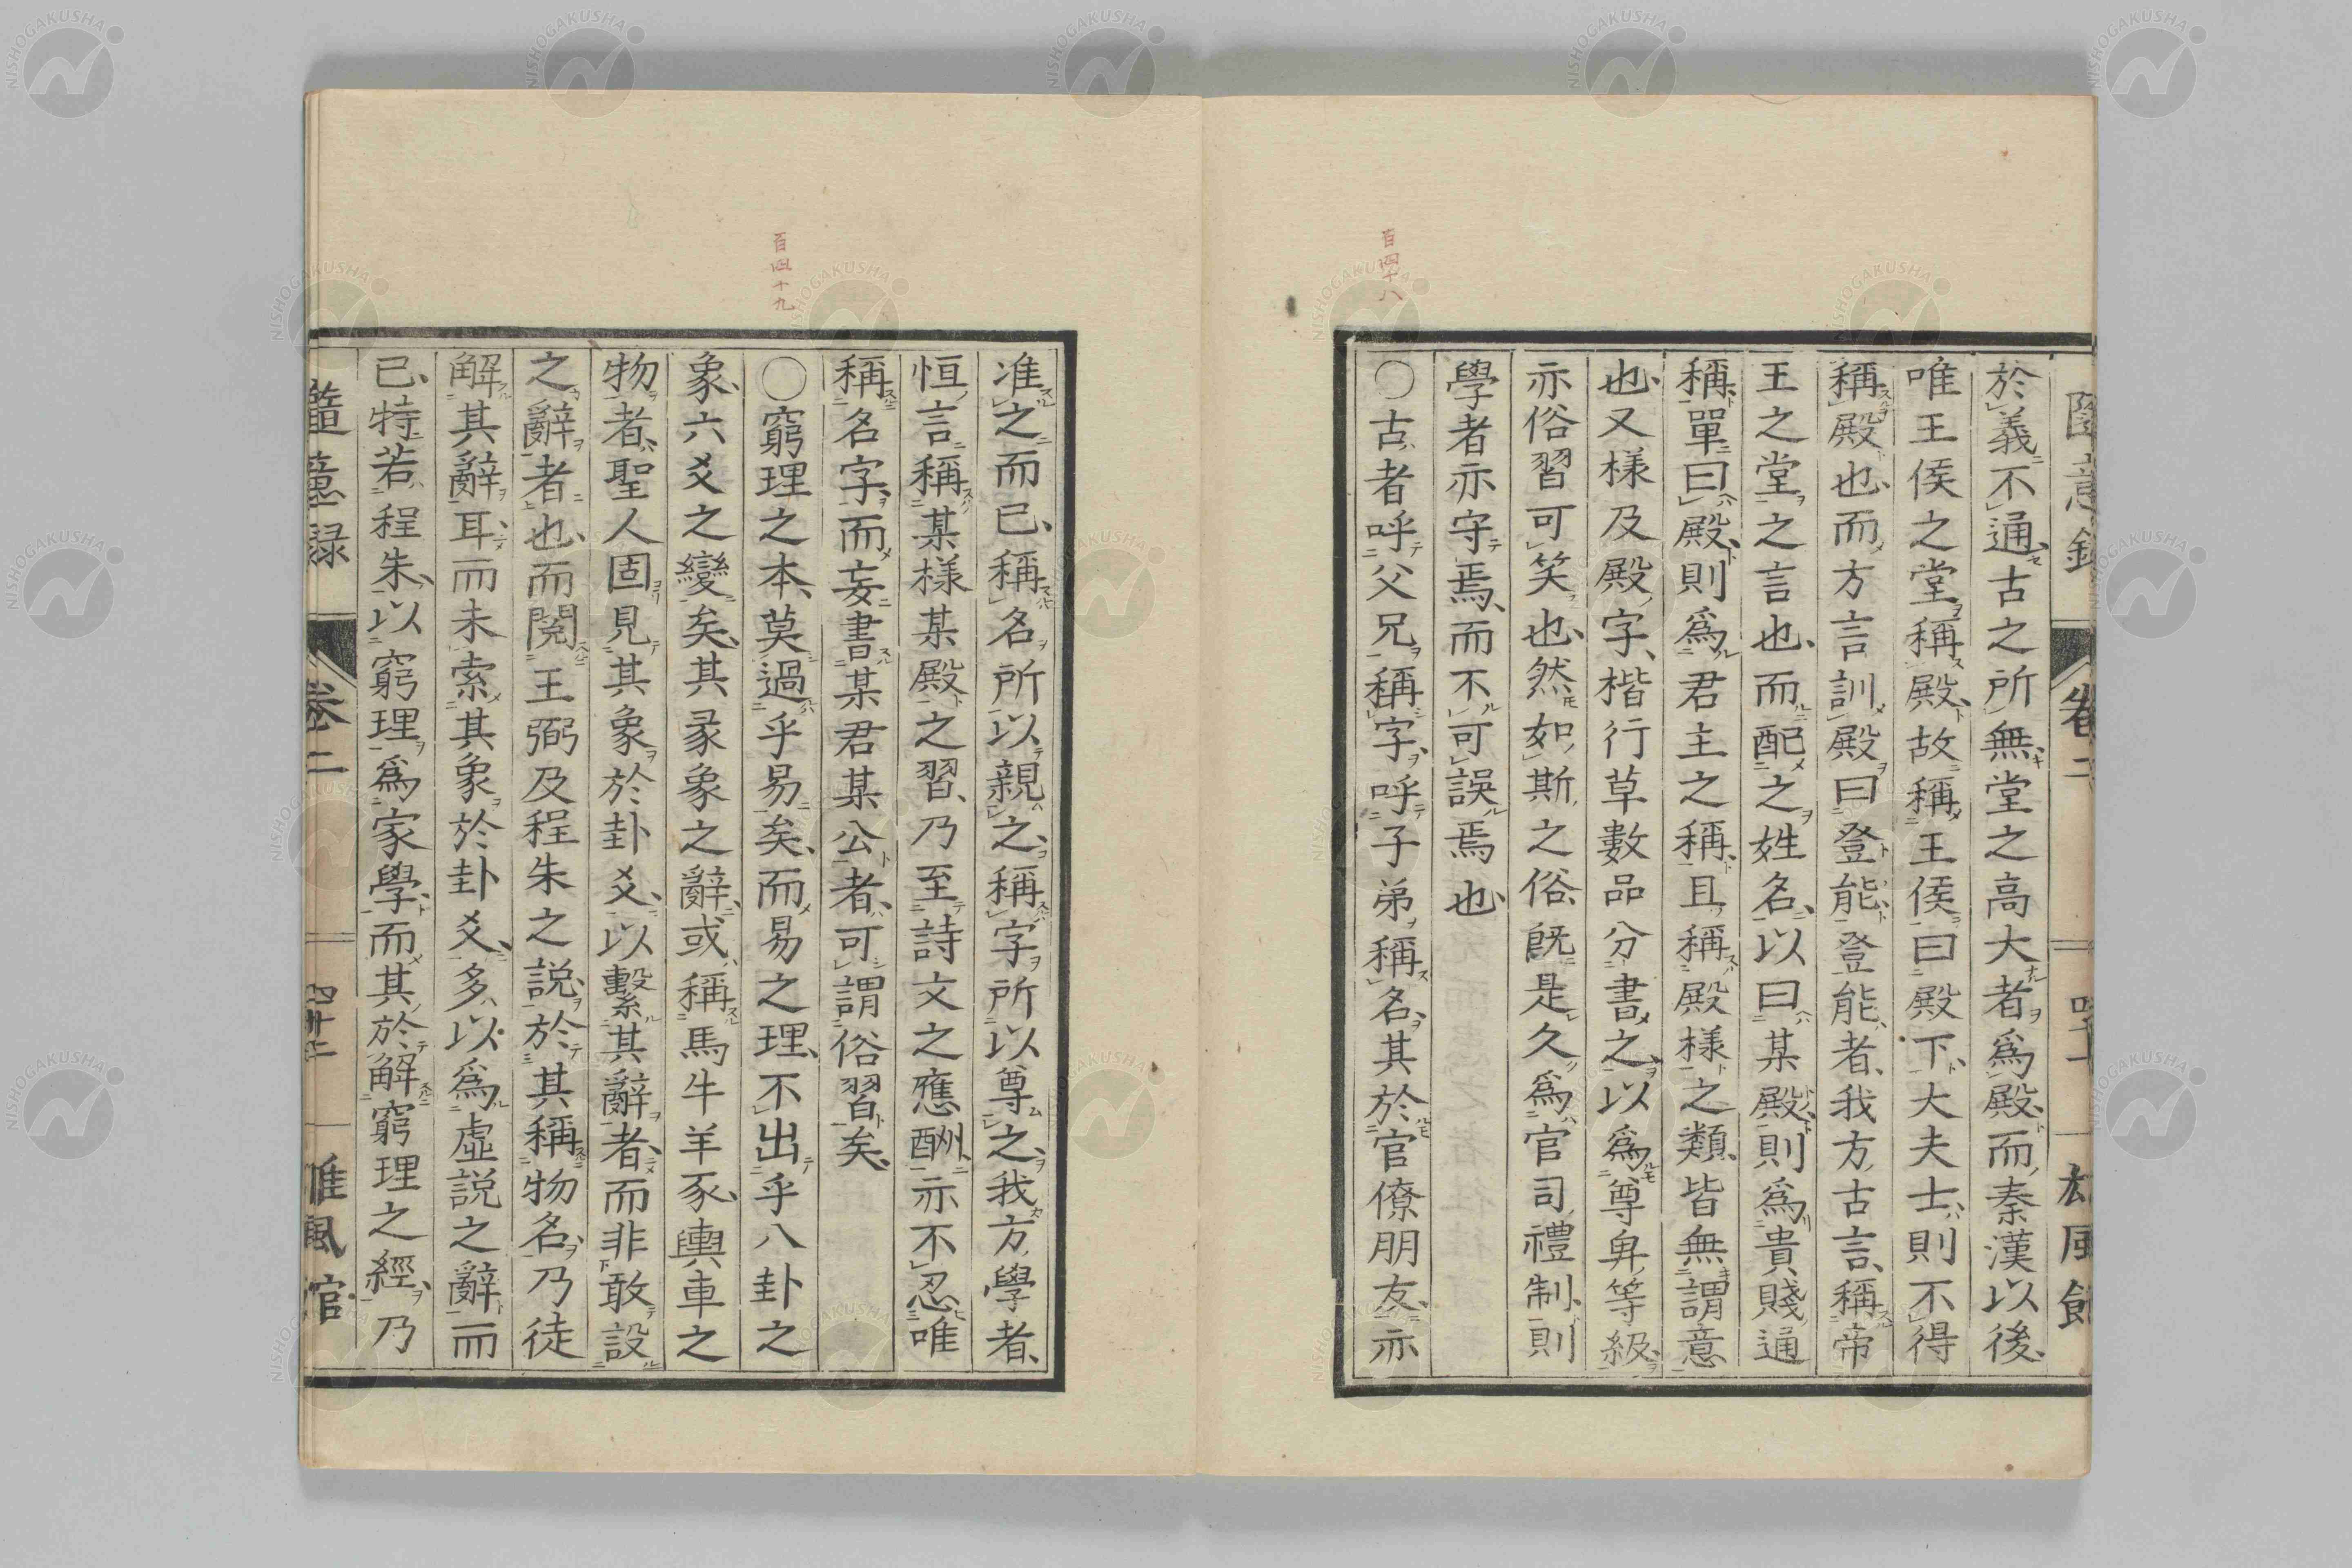 百四十八
於義不通古之所無堂之高大者爲殿而秦漢以後
唯王侯之堂稱殿故稱王侯曰殿下大夫士則不得
稱殿也而方言訓殿曰登能登能者我方古言稱帝
王之堂之言也而配之姓名以曰某殿則爲貴賤通
稱單曰殿則爲君主之稱且稱殿樣之類皆無謂意
也又樣及殿字楷行草數品分書之以爲尊卑等級
亦俗習可笑也然如斯之俗既是久爲官司禮制則
學者亦守焉而不可誤焉也
〇古者呼父兄稱字呼子弟稱名其於官僚朋友亦
百四十九
准之而已稱名所以親之稱字所以尊之我方學者
恒言稱某樣某殿之習乃至詩文之應酬亦不忍唯
稱名字而妄書某君某公者可謂俗習矣
〇窮理之本莫過乎易矣而易之理不出乎八卦之
象六爻之變矣其彖象之辭或稱馬牛羊豕輿車之
物者聖人固見其象於卦爻以繫其辭者而非敢設
之辭者也而閱王弼及程朱之說於其稱物名乃徒
解其辭耳而未索其象於卦爻多以爲虛說之辭而
已特若程朱以窮理爲家學而其於解窮理之經乃
卷二